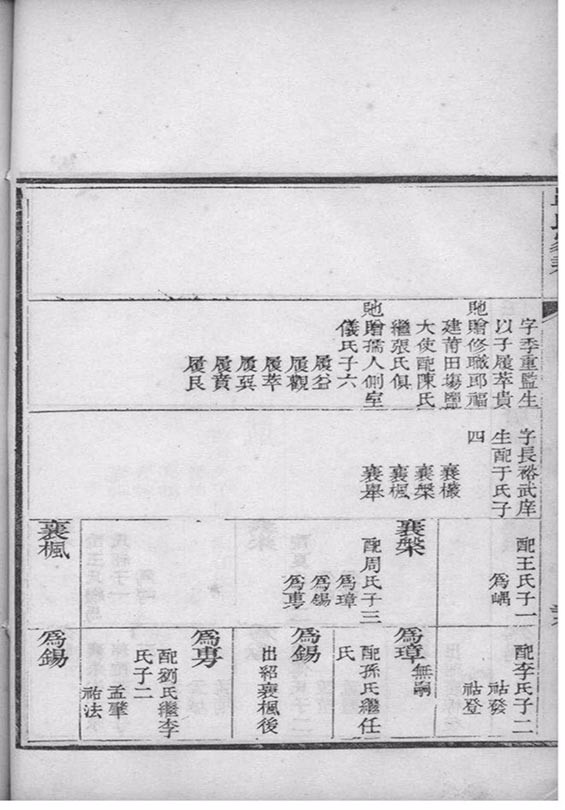 字季重監生
以子履萃貴
貤贈修職郎福
建莆田場鹽
大使配陳氏
繼張氏俱
貤贈孺人側室
儀氏子六
履谷
履觀
履萃
履巽
履賁
履艮
字長裕武庠
生配于氏子
四
襄欀
襄槃
襄楓
襄舉
配王氏子一
為嵎
襄槃
配周氏子三
為璋
為錫
為專
襄楓
配李氏子二
祜發
祜登
為璋
無嗣
配孫氏繼任
氏
為錫
出紹襄楓後
為專
配劉氏繼李
氏子二
孟肇
祐法
為錫